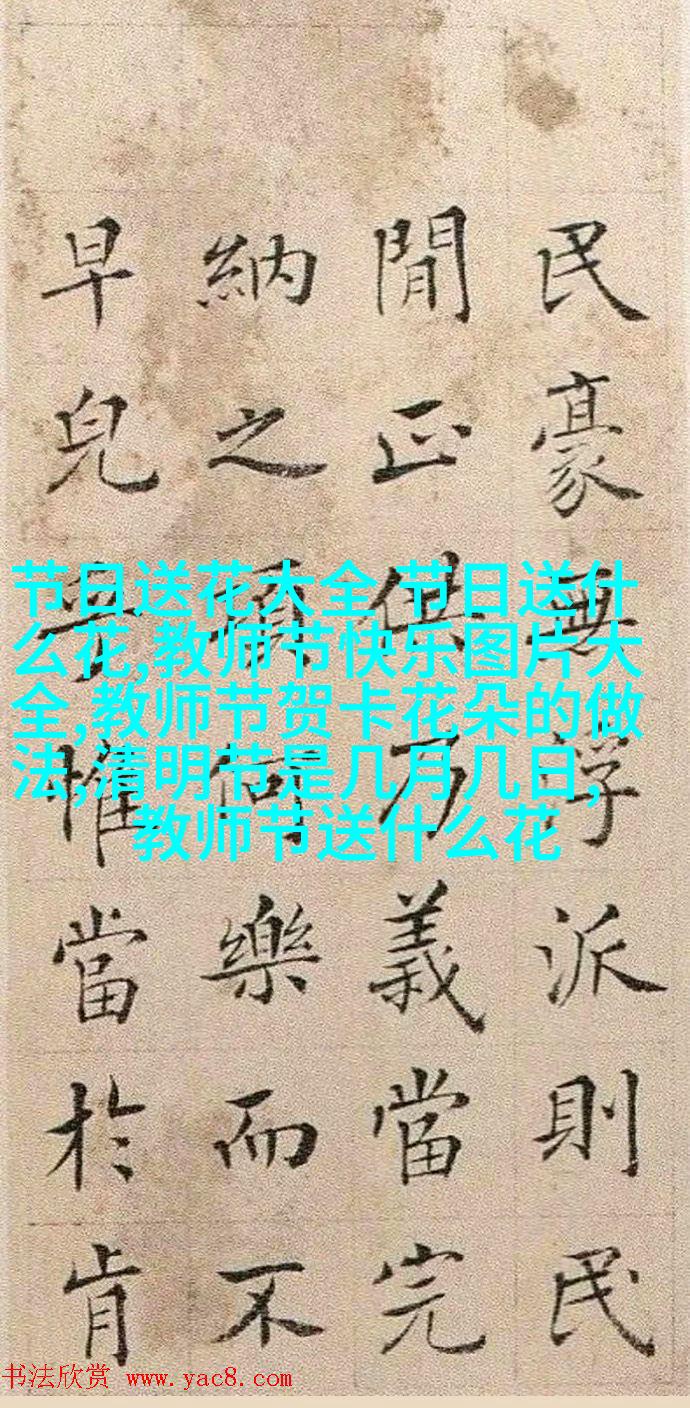 民豪無浮派則民
閒正供乃義當完
納之何樂而不
早兒惟當於肯
节日送花大全,节日送什
么花,教师节快乐图片大
全,教师节贺卡花朵的做
法,清明节是几月几日,
教师节送什么花
书法欣赏 www.yac8.com